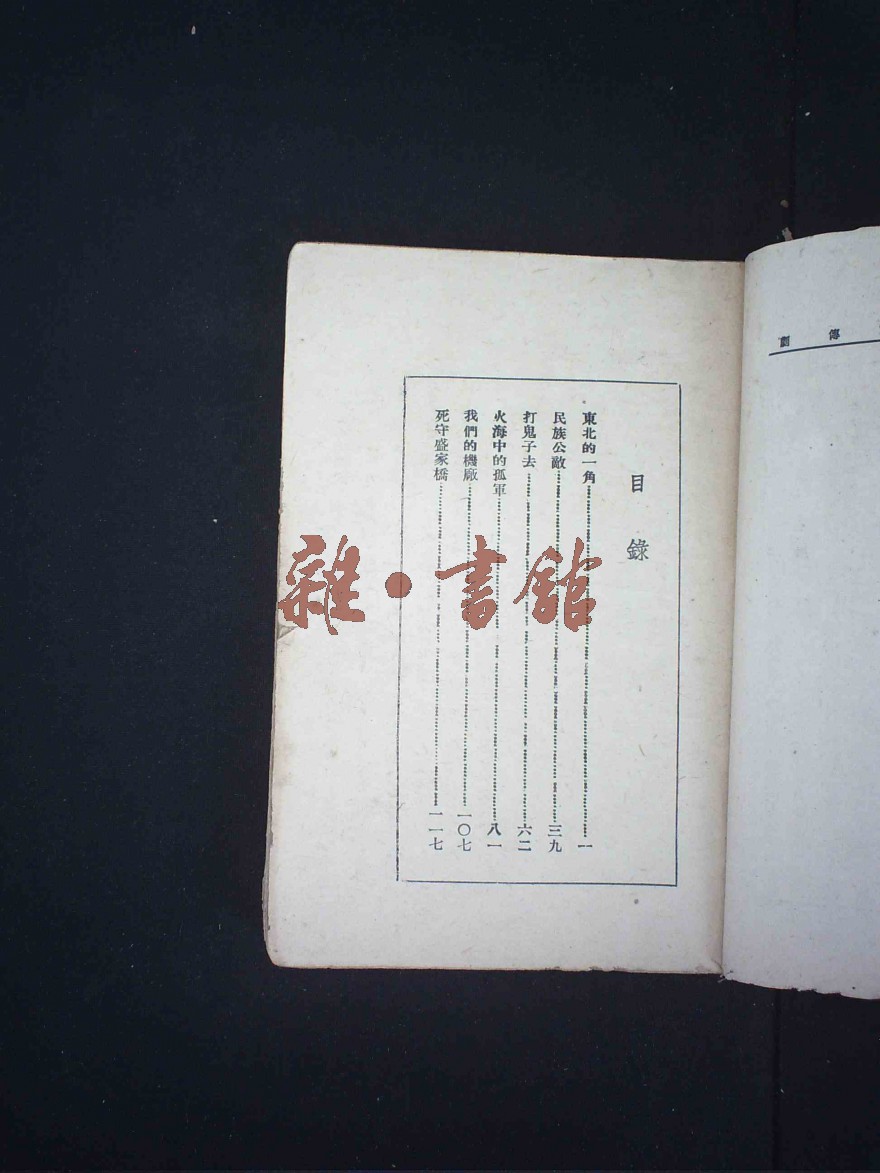 劇 傳
目 錄
東北的一角 一
民族公敵 三九
打鬼子去 六二
火海中的孤軍 八一
我們的機廠 一〇七
死守盛家橋 一一七
雜·書館